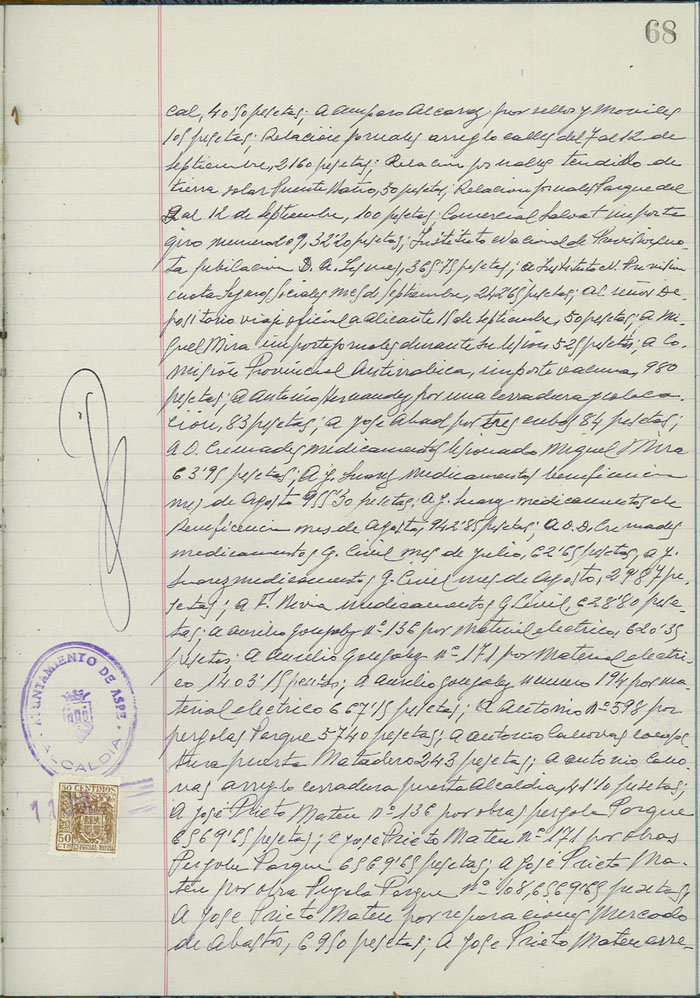 68
cal, 40'50 pesetas; a Amparo Alcaraz por sellos y Moviles
105 pesetas; Relación jornales arreglo calles del 7 al 12 de
Septiembre, 2160 pesetas; Relacion jornales tendido de
tierra solar Puente Baño, 50 pesetas; Relacion jornales Parque del
9 al 12 de Septiembre, 100 pesetas; Comercial Salvat importe
giro numero 209, 3220 pesetas; Instituto Nacional de Prevision
ta Jubilacion D. A. 365'75 pesetas; a Instituto N. Prevision
cuota Seguros Sociales mes de Septiembre, 24265 pesetas; Al señor De-
positario viaje oficial a Alicante 15 de Septiembre, 50 pesetas; A Mi-
guel Mira importe jornales durante su lesión 525 pesetas; a Co-
mision Provincial Antirrabica, importe vacuna, 980
pesetas; a Antonio Hernandez por una cerradura y coloca-
cion, 83 pesetas; a José Abad por tres cubos 84 pesetas;
a D. Cremades medicamentos lesionado Miguel Mira
63'95 pesetas; A J. Suarez medicamentos beneficencia
mes de Agosto 955'30 pesetas. A J. Suarez medicamentos de
Beneficencia mes de Agosto, 942'85 pesetas; a D. D. Cremades
medicamentos G. Civil mes de Julio, 62'65 pesetas, a J.
Suarez medicamentos G. Civil mes de Agosto, 29'87 pe-
setas; a F. medicamentos G. Civil, 628'80 pese-
tas; a Aurelio Gonzalez nº 136 por Material electrico, 620'35
pesetas. A Aurelio Gonzalez nº 171 por Material electri-
co 1403'15 pesetas; a Aurelio Gonzalez numero 194 por ma-
terial electrico 667'15 pesetas; a Antonio nº 598 por
pergolas Parque 5740 pesetas; a Antonio Canovas
puerta Matadero 243 pesetas; a Antonio Cano-
vas arreglo cerradura puerta Alcaldia, 41'10 pesetas;
A José Prieto Mateu nº 136 por obras pergola Parque
6569'65 pesetas; a José Prieto Mateu nº 171 por obras
Pergola Parque 6569'65 pesetas; A José Prieto Ma-
teu por obra Pergola Parque nº 108, 6569'65 pesetas;
A José Prieto Mateu por reparaciones Mercado
de Abastos, 6950 pesetas; a José Prieto Mateu arre-
AYUNTAMIENTO DE ASPE
ALCALDIA
50 CENTIMOS
50
CTS